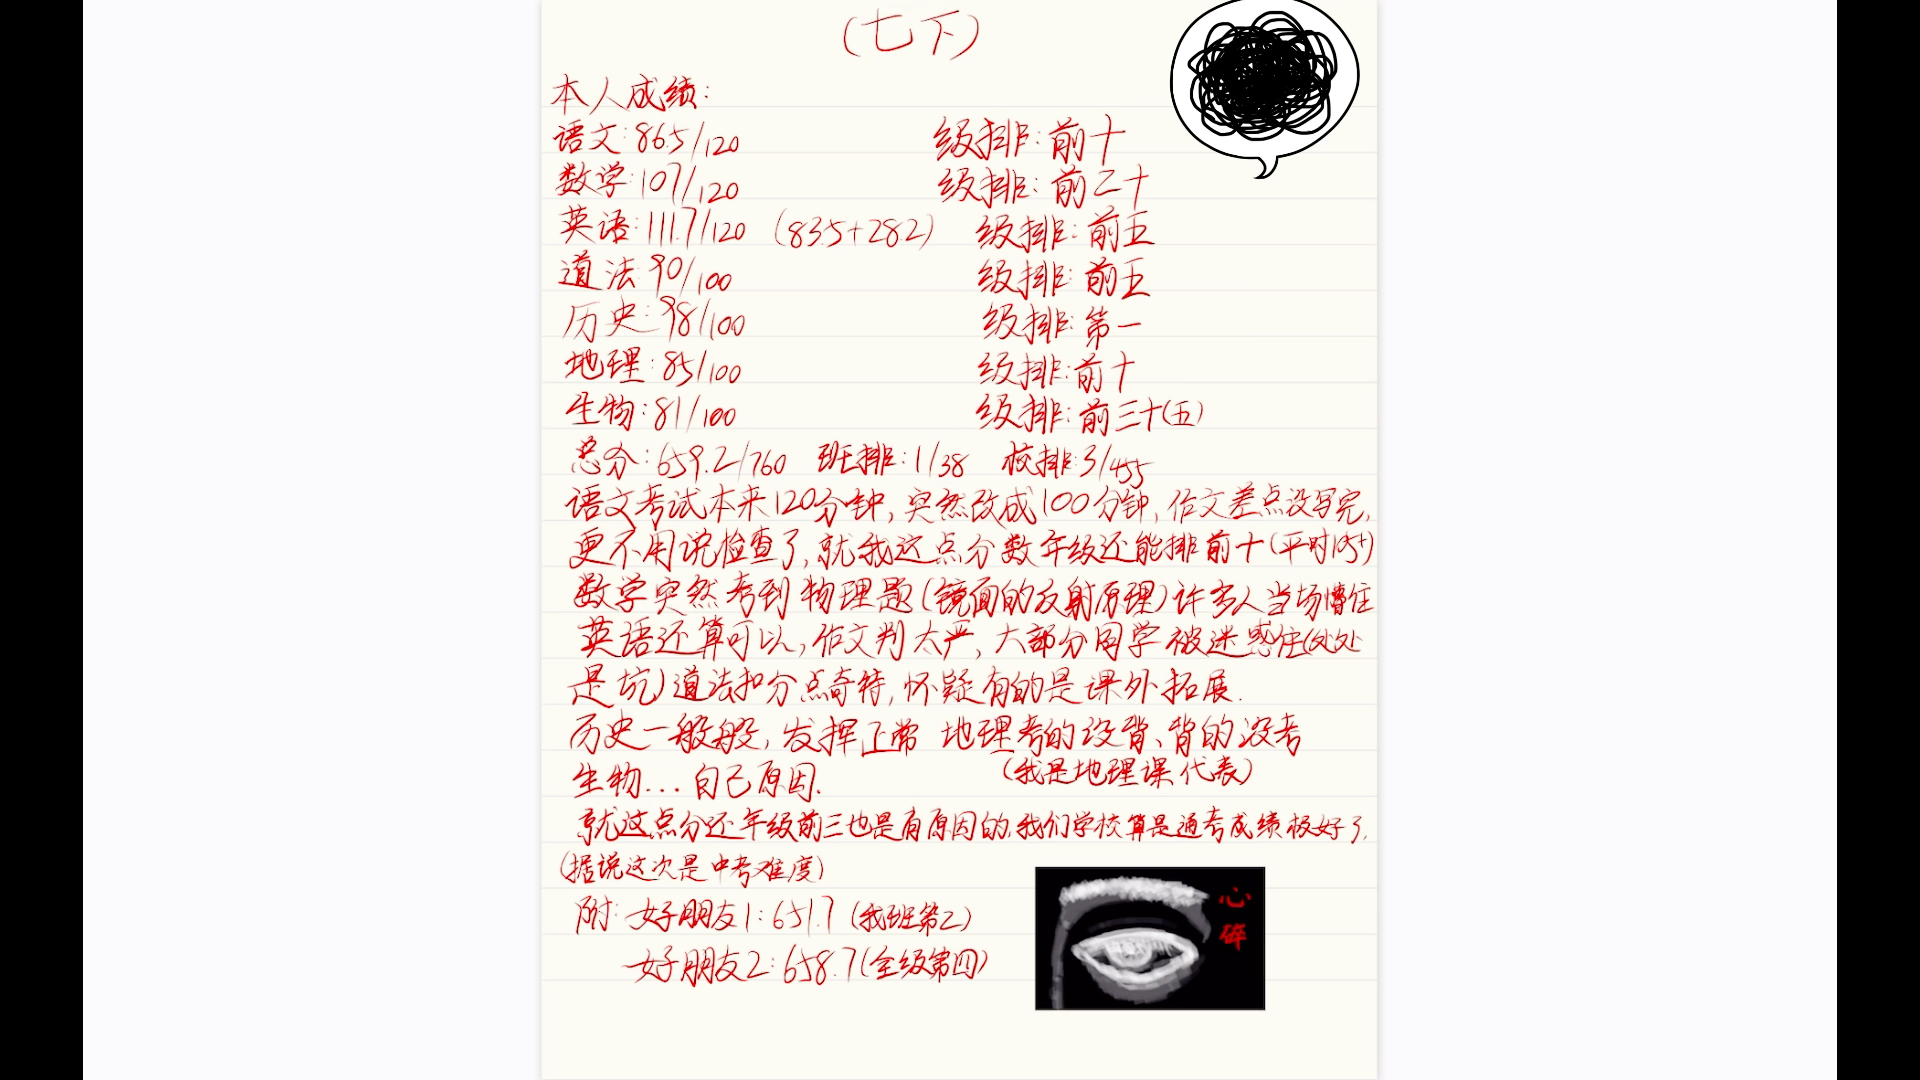 (七下)
本人成绩:
语文:86.5/120 级排:前十
数学:107/120 级排:前二十
英语:111.7/120 (83.5+28.2) 级排:前五
道法:90/100 级排:前五
历史:98/100 级排:第一
地理:85/100 级排:前十
生物:81/100 级排:前三十(五)
总分:659.2/760 班排:1/38 校排:3/455
语文考试本来120分钟,突然改成100分钟,作文差点没写完,
更不用说检查了,就我这点分数年级还能排前十(平时105+)
数学突然考到物理题(镜面的反射原理)许多人当场懵住
英语还算可以,作文判太严,大部分同学被迷惑住(处处
是坑)道法扣分点奇特,怀疑有的是课外拓展.
历史一般般,发挥正常 地理考的没背、背的没考
(我是地理课代表)
生物...自己原因.
就这点分还年级前三也是有原因的,我们学校算是通考成绩极好了,
(据说这次是中考难度)
附:好朋友1:651.7(我班第2)
好朋友2:658.7(全级第四)
心
碎